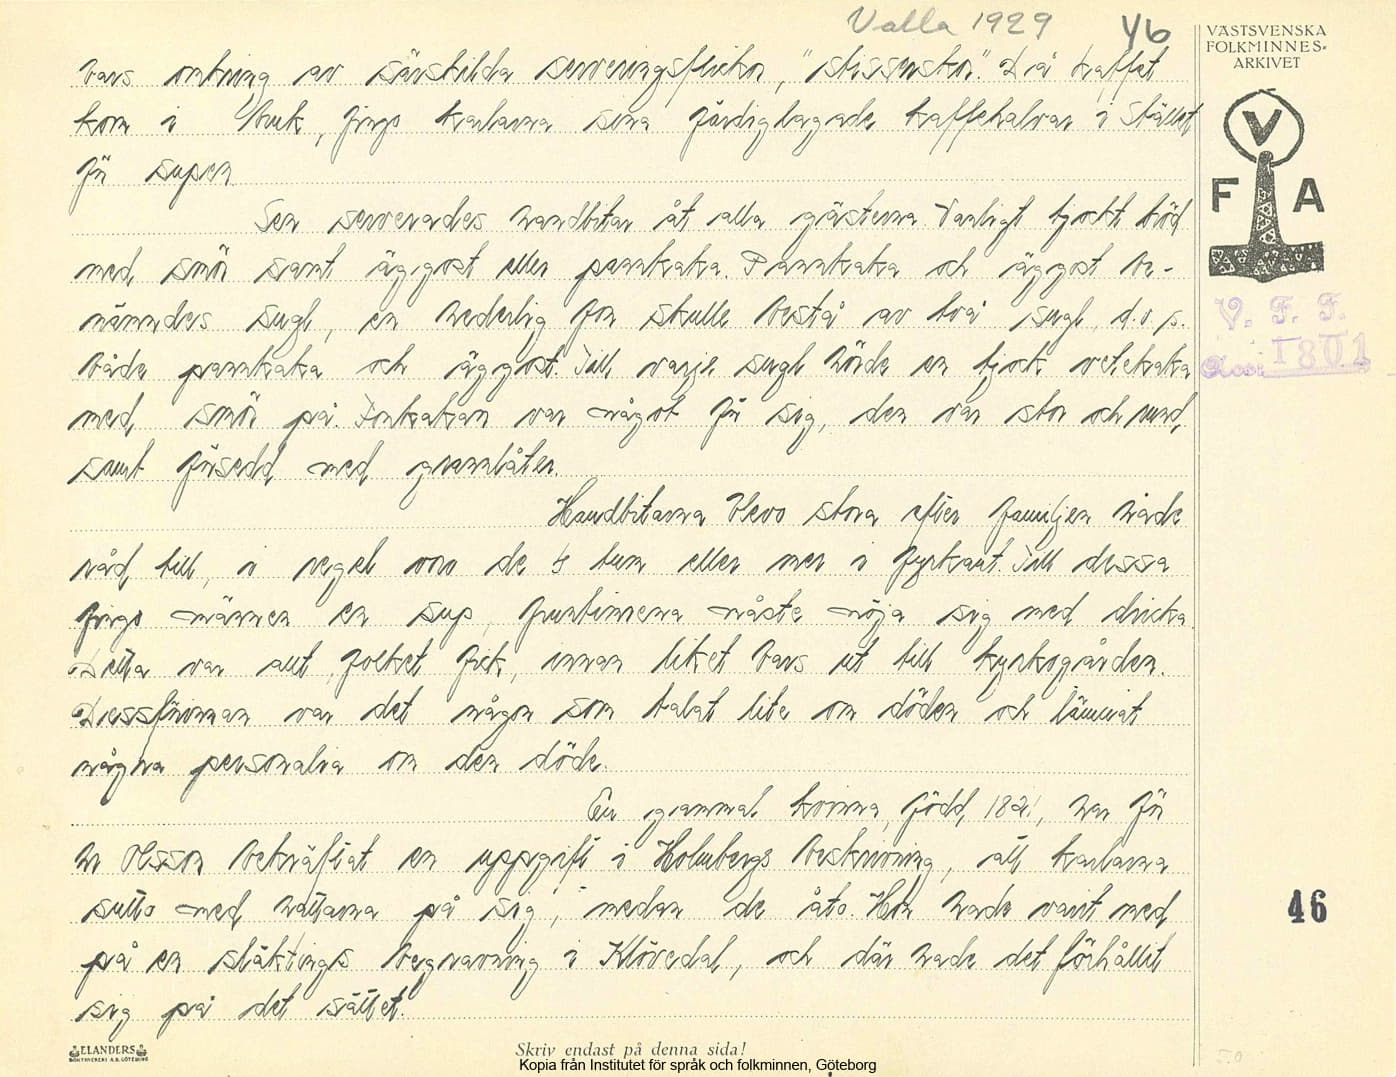 Valla 1929 46
VÄSTSVENSKA
FOLKMINNES-
ARKIVET
V
F A
V. F. F.
Acc: 1801
bars omkring av särskilda serveringsflickor, "stissenskor". Då kaffet
kom i bruk, fingo karlarna sina färdiglagade kaffehalvar i stället
för supen
Sen serverades handbitar åt alla gästerna. Vanligt tjockt bröd
med smör samt äggost eller pannkaka. Pannkaka och äggost be-
nämndes sugl, en hederlig fon skulle bestå av två sugl, d.v.s.
både pannkaka och äggost. Till varje sugl hörde en tjock vetekaka
med smör på. Fonkakan var något för sig, den var stor och rund,
samt försedd med grannlåter.
Handbitarna blevo stora efter familjen hade
råd till, i regel voro de 4 tum eller mer i fyrkant. Till dessa
fingo männen en sup, fruntimrena måste nöja sig med dricka.
Detta var allt folket fick, innan liket bars ut till kyrkogården.
Dessförinnan var det någon som talat lite om döden och lämnat
några personalia om den döde.
En gammal kvinna, född 1821, har för
hr Olsson bekräftat en uppgift i Holmbergs beskrivning, att karlarna
sutto med hattarna på sig, medan de åto. Hon hade varit med
på en släktings begravning i Klövedal, och där hade det förhållit
sig på det sättet.
46
ELANDERS
BOKTRYCKERI A.B. GÖTEBORG
Skriv endast på denna sida!
Kopia från Institutet för språk och folkminnen, Göteborg